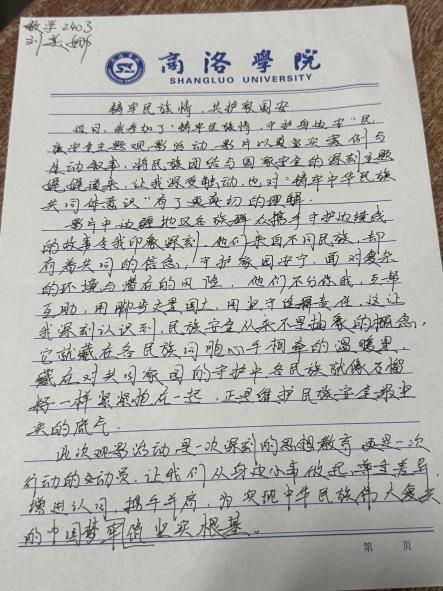 数学2403
刘美娜
商洛学院
SHANGLUO UNIVERSITY
铸牢民族情,共护家国安
近日,我参加了"铸牢民族情,守护身边安"民
族安全主题观影活动,影片以真实案例与
生动叙事,将民族团结与国家安全的深刻主题
娓娓道来,让我深受触动,也对"铸牢中华民族
共同体意识"有了更真切的理解。
影片中,边疆地区各族群众携手守护边境线
的故事令我印象深刻。他们来自不同民族,却
有着共同的信念,守护家园安宁,面对复杂
的环境与潜在的风险,他们不分你我,互帮
互助,用脚步丈量国土,用坚守诠释责任。这让
我深刻认识到,民族安全从来不是抽象的概念,
它就藏在各民族同胞心手相牵的温暖里,
藏在对共同家园的守护中各民族就像石榴
籽一样紧紧抱在一起,正是维护民族安全最坚
实的底气。
此次观影活动是一次深刻的思想教育更是一次
行动的动员,让我们从身边小事做起,尊重差异
增进认同,携手并肩,为实现中华民族伟大复兴
的中国梦牢筑坚实根基。
第 页